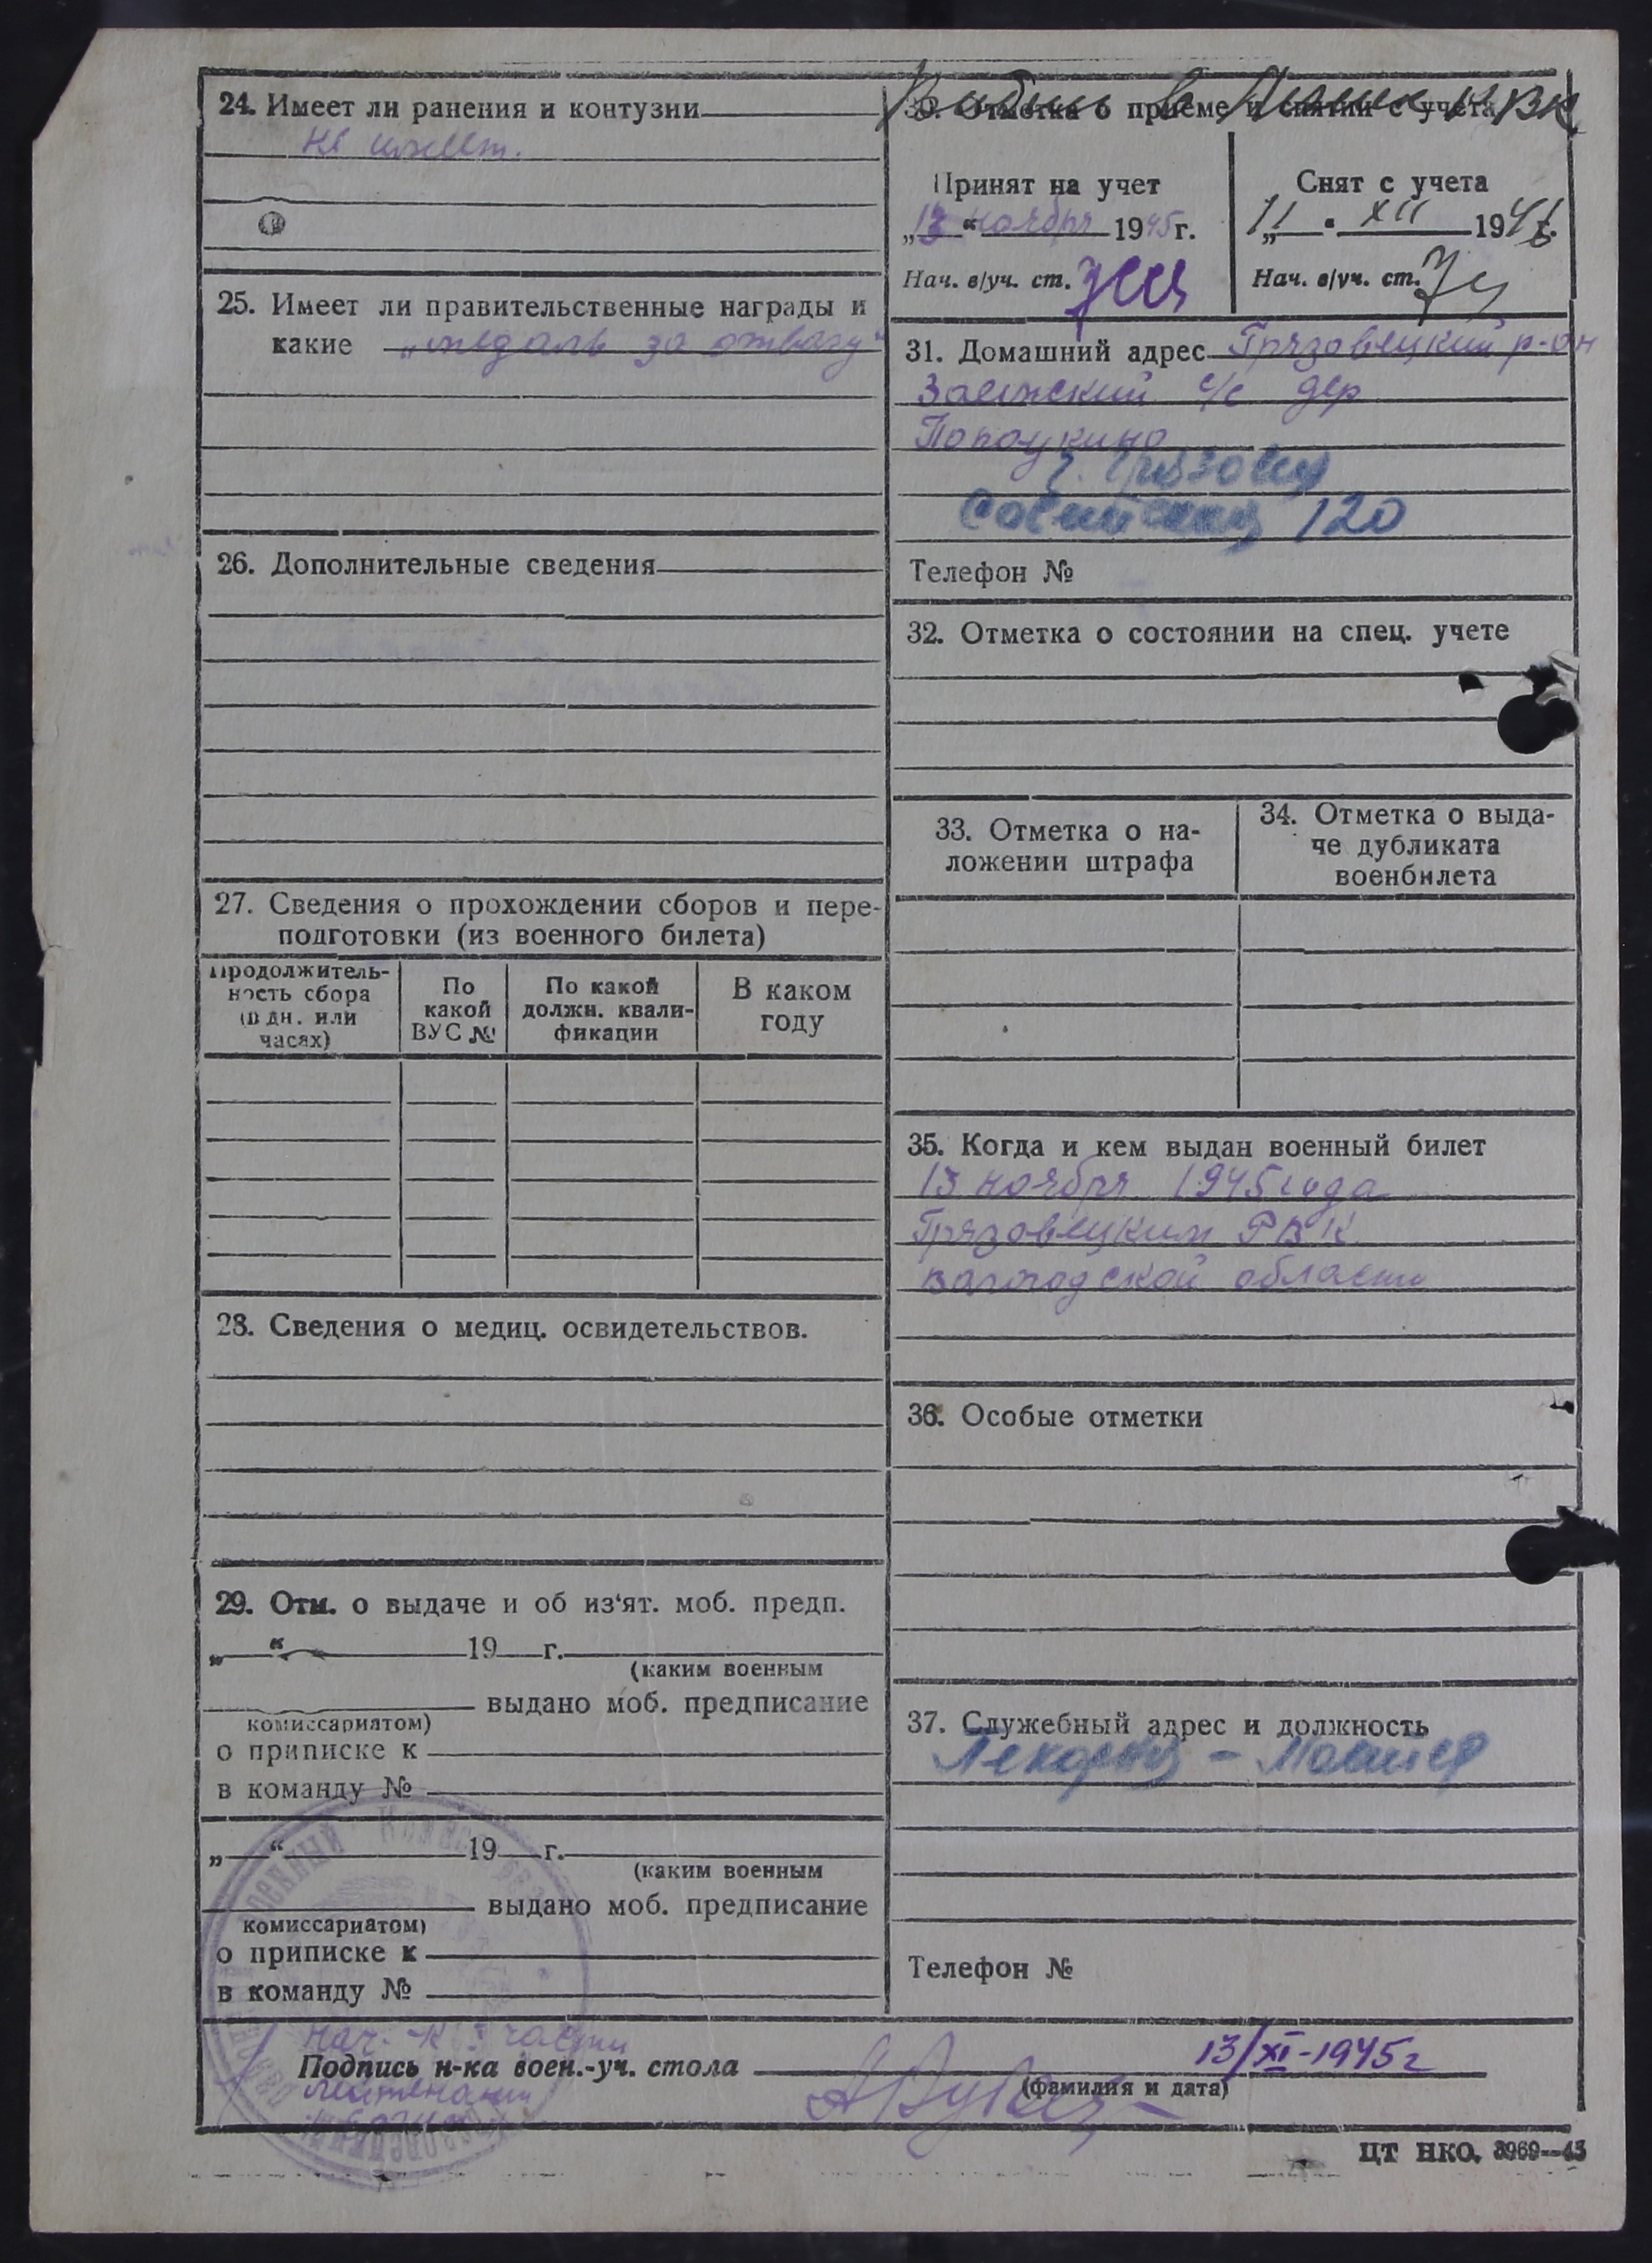 24. Имеет ли ранения и контузии
не имеет.
25. Имеет ли правительственные награды и
какие „медаль за отвагу"
26. Дополнительные сведения
27. Сведения о прохождении сборов и пере-
подготовки (из военного билета)
Продолжитель-
ность сбора
(в дн. или
часах)
По
какой
ВУС №
По какой
должн. квали-
фикации
В каком
году
28. Сведения о медиц. освидетельствов.
29. Отм. о выдаче и об из'ят. моб. предп.
„ “ 19 г.
(каким военным
выдано моб. предписание
комиссариатом)
о приписке к
в команду №
„ “ 19 г.
(каким военным
выдано моб. предписание
комиссариатом)
о приписке к
в команду №
30. Отметка о приеме и снятии с учета
Принят на учет
„13“ ноября 1945 г.
Нач. в/уч. ст.
Снят с учета
„11“ XII 1946
Нач. в/уч. ст.
31. Домашний адрес Грязовецкий р-он
с/с дер
г. Грязовец
Советская 120
Телефон №
32. Отметка о состоянии на спец. учете
33. Отметка о на-
ложении штрафа
34. Отметка о выда-
че дубликата
военбилета
35. Когда и кем выдан военный билет
13 ноября 1945 года
Грязовецким РВК
Вологодской области
36. Особые отметки
37. Служебный адрес и должность
Телефон №
Нач-к части
Подпись н-ка воен.-уч. стола 13/XI-1945г
(фамилия и дата)
лейтенант
ЦТ НКО. 3969—43